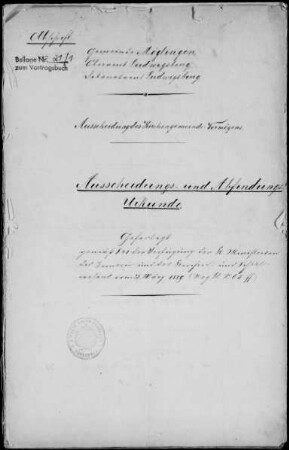 Abschrift.
Beilage Nr. 29/1
zum Vertragsbuch
Gemeinde Möglingen
Oberamt Ludwigsburg
Dekanatamt Ludwigsburg
Ausscheidung des Kirchengemeinde Vermögens
Ausscheidungs- und Abfindungs-
Urkunde
Gefertigt
gemäß der Verfügung der K. Ministerien
des Innern und des Kirchen- und Schul-
wesens vom 1889